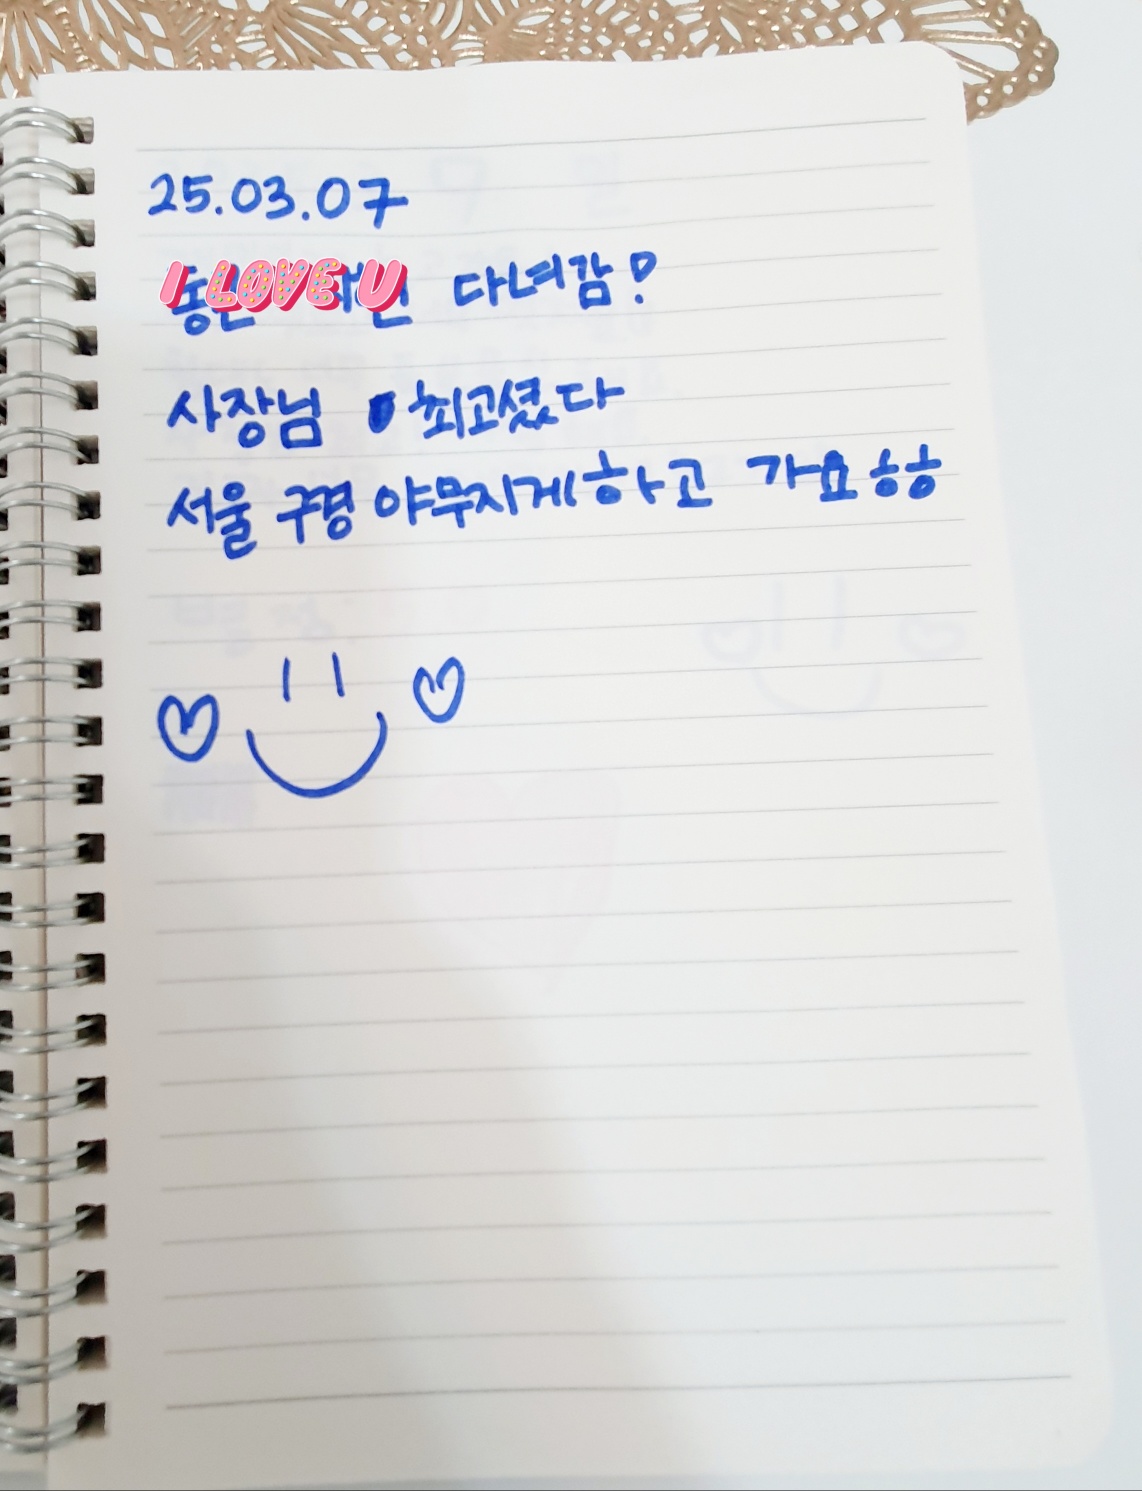 25.03.07
I LOVE U 다녀감?
사장님 최고셨다
서울 구경 야무지게 하고 가요 ㅎㅎ